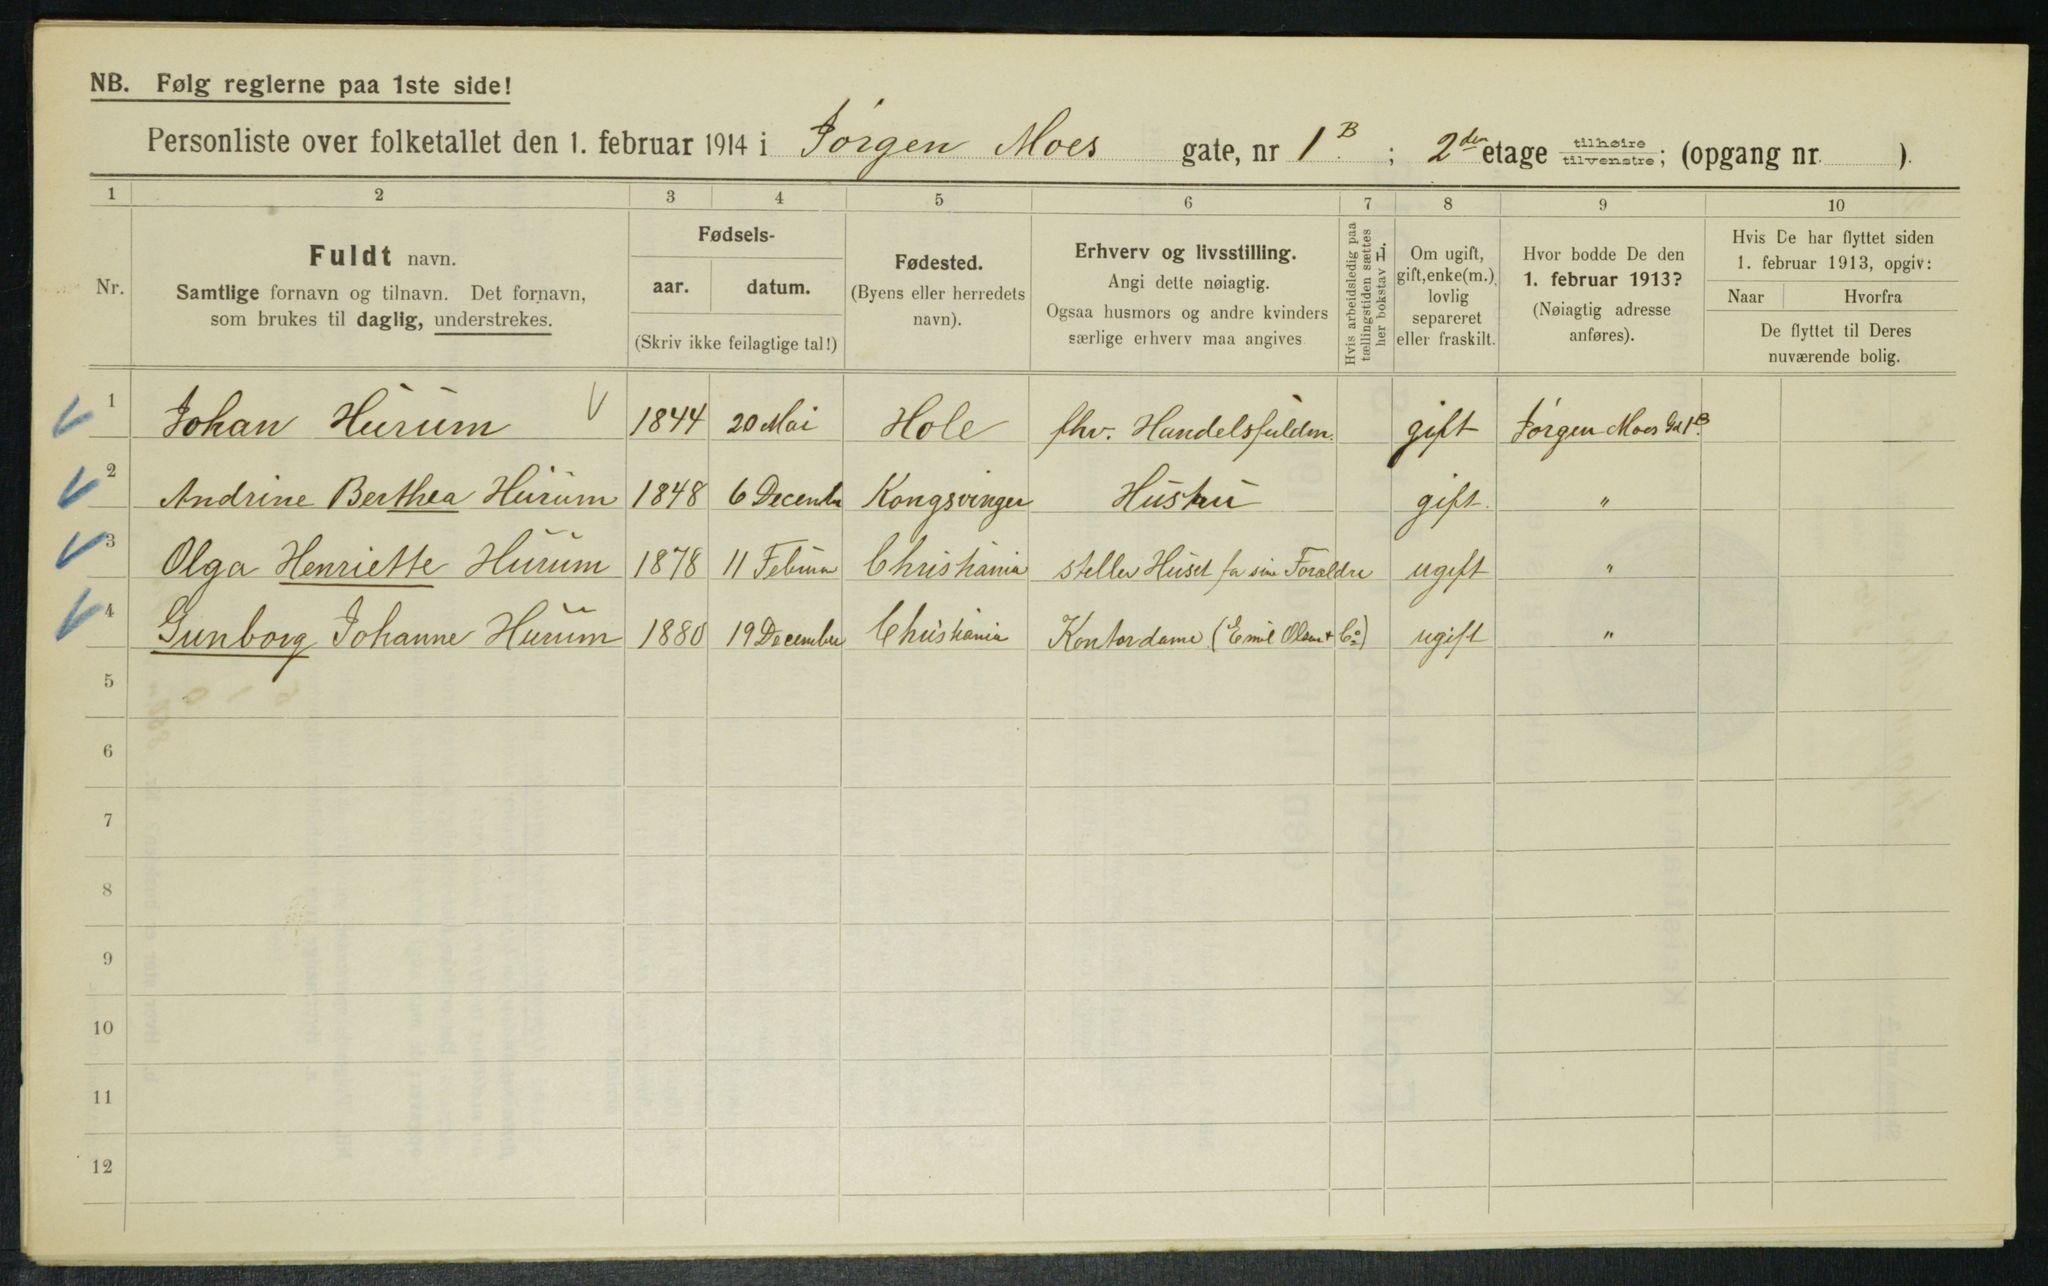 NB. Følg reglerne paa 1ste side!
Personliste over folketallet den 1. februar 1914 i Jørgen Moes gate, nr 1B.; 2den etage tilhøire tilvenstre; (opgang nr. ).
1 2 3 4 5 6 7 8 9 10
Nr.
Fuldt navn.
Samtlige fornavn og tilnavn. Det fornavn,
som brukes til daglig, understrekes.
Fødsels-
aar. datum.
(Skriv ikke feilagtige tal!)
Fødested.
(Byens eller herredets
navn).
Erhverv og livsstilling.
Angi dette nøiagtig.
Ogsaa husmors og andre kvinders
særlige erhverv maa angives
Hvis arbeidsledig paa
tællingstiden sættes
her bokstav L.
Om ugift,
gift, enke(m.),
lovlig
separeret
eller fraskilt.
Hvor bodde De den
1. februar 1913?
(Nøiagtig adresse
anføres).
Hvis De har flyttet siden
1. februar 1913, opgiv:
Naar Hvorfra
De flyttet til Deres
nuværende bolig.
1 Johan Hurum 1844 20 Mai Hole fhv. Handelsfuldm. gift Jørgen Moes Gd 1B
2 Andrine Berthea Hurum 1848 6 Decembr Kongsvinger Hustru gift. "
3 Olga Henriette Hurum 1878 11 Februar Christiania steller Huset for sine Forældre ugift "
4 Gunborg Johanne Hurum 1880 19 December Christiania Kontordame (Emil Olsen & Co) ugift "
5
6
7
8
9
10
11
12